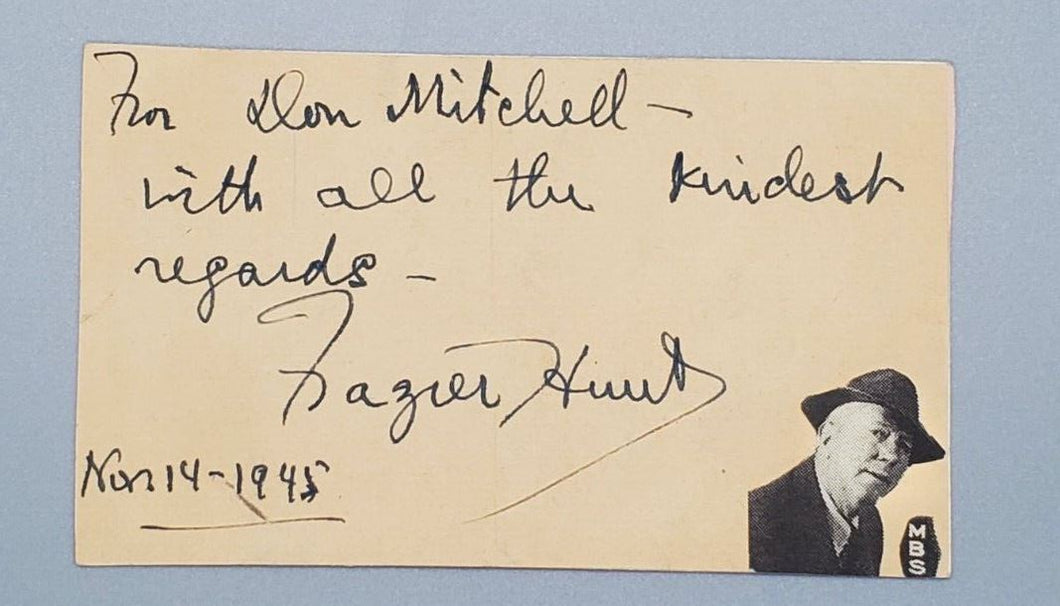 For Don Mitchell –
with all the kindest
regards –
Frazier Hunt
Nov 14 - 1945
MBS